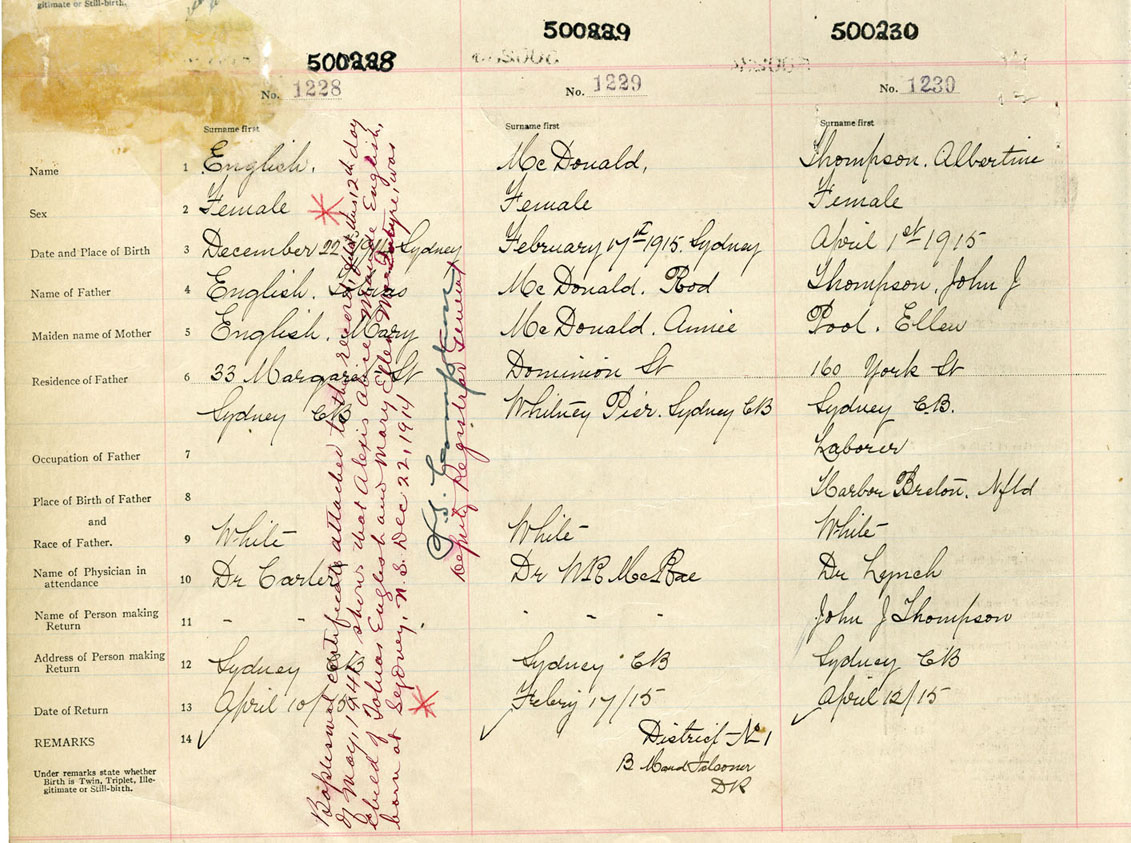 gitimate or Still-birth.
500228
500229
500230
No. 1228
No. 1229
No. 1230
Surname first
Surname first
Surname first
Name
1
English.
McDonald,
Thompson. Albertine
Sex
2
Female
Female
Female
Date and Place of Birth
3
December 22 Sydney
February 17th 1915. Sydney
April 1st 1915
Name of Father
4
English. Tobias
McDonald. Rod
Thompson, John J
Maiden name of Mother
5
English. Mary
McDonald. Annie
Pool. Ellen
Residence of Father
6
33 Margaret St
Dominion St
160 York St
Sydney CB
Whitney Pier. Sydney CB
Sydney C.B.
Occupation of Father
7
Laborer
Place of Birth of Father
8
Harbor Breton. Nfld
and
Race of Father.
9
White
White
White
Name of Physician in
attendance
10
Dr Carter
Dr WR McRae
Dr Lynch
Name of Person making
Return
11
" "
"
John J Thompson
Address of Person making
Return
12
Sydney CB
Sydney CB
Sydney CB
Date of Return
13
April 10/15
Febry 17/15
April 12/15
REMARKS
14
District No 1
B Maud Falconer
DR
Under remarks state whether
Birth is Twin, Triplet, Ille-
gitimate or Still-birth.
Baptismal certificate attached to this record, this 12th day
of May, 1941, shows that Alexis Maude English,
child of Tobias English and Mary Ellen was
born at Sydney, N.S. Dec 22, 1914
Deputy Registrar General